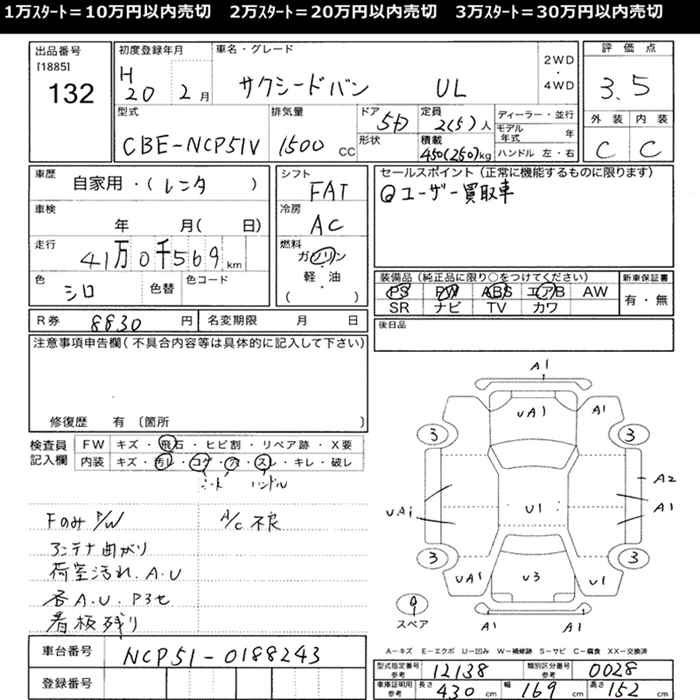 1万ｽﾀｰﾄ＝10万円以内売切　2万ｽﾀｰﾄ＝20万円以内売切　3万ｽﾀｰﾄ＝30万円以内売切
出品番号 [1885] 132
初度登録年月 H 20 2月
車名・グレード サクシードバン UL
2WD・4WD
評価点 3.5
型式 CBE-NCP51V
排気量 1500 CC
ドア 5D
形状
定員 2(5)人
積載 450(250)kg
ディーラー・並行
モデル年式 年
ハンドル 左・右
外装 C
内装 C
車歴 自家用・(レンタ)
シフト FAT
車検 年 月(日)
冷房 AC
走行 41万0千569 km
燃料 ガソリン・軽・油 ( )
色 シロ 色替 色コード
R券 8830 円
名変期限 月 日
セールスポイント (正常に機能するものに限ります)
@ユーザー買取車
装備品(純正品に限り○をつけてください)
PS PW ABS エアB AW
SR ナビ TV カワ
新車保証書 有・無
後日品
注意事項申告欄(不具合内容等は具体的に記入して下さい)
修復歴 有 〔箇所
検査員記入欄
FW キズ・飛石・ヒビ割・リペア跡・X要
内装 キズ・汚レ・コゲ・穴・スレ・キレ・破レ
シート ハンドル
Fのみ P/W
A/C不良
アンテナ曲がり
荷室汚れ.A.U
各A.U.Pスモ
看板残り
車台番号 NCP51-0188243
登録番号
A1
UA1 A1
3 3
A2
UA1 U1 A1
3 3
UA1 U3 U1
9 スペア
A1 A1
A－キズ E－エクボ U－凹み W－補修跡 S－サビ C－腐食 XX－交換済
型式指定番号 参考 12138
類別区分番号 参考 0028
車庫証明用 参考 長さ 430 cm 幅 169 cm 高さ 152 cm